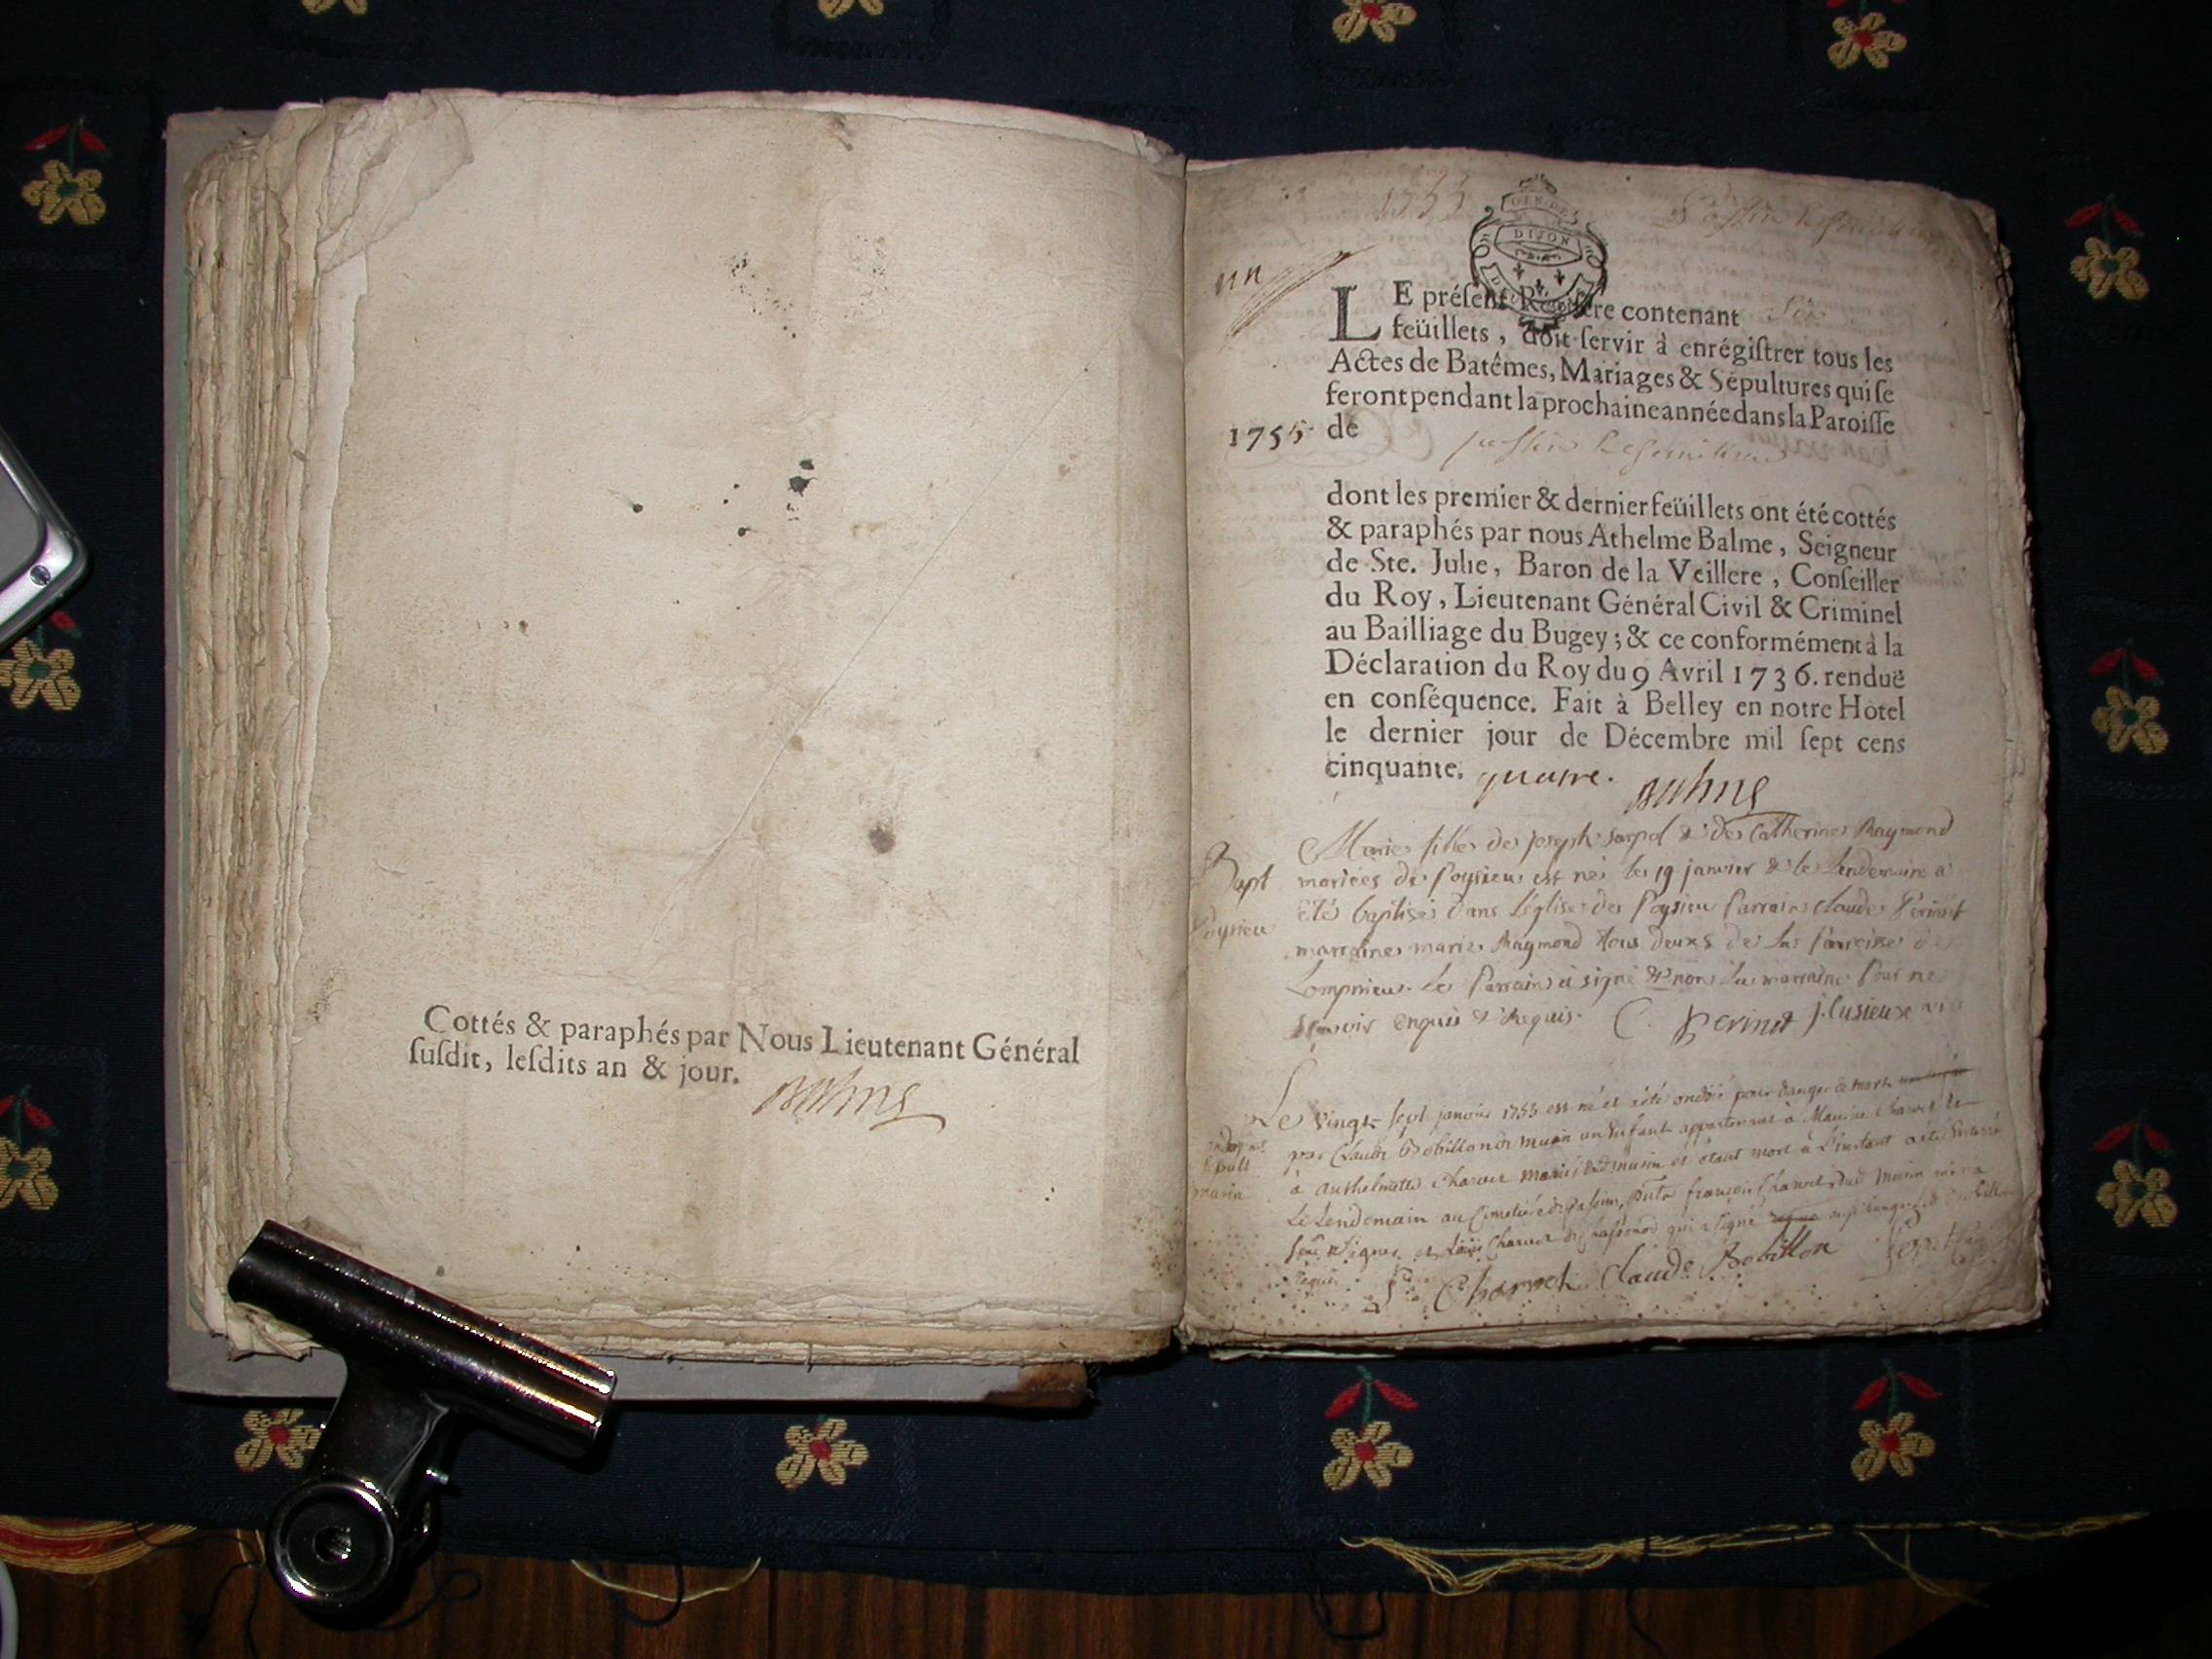 Cottés & paraphés par Nous Lieutenant Général
ſuſdit, leſdits an & jour.
Balme
1755
DIJON
un
LE préſent Regiſtre contenant Six
feüillets, doit ſervir à enrégiſtrer tous les
Actes de Batêmes, Mariages & Sépultures qui ſe
feront pendant la prochaine année dans la Paroiſſe
1755. de
dont les premier & dernier feüillets ont été cottés
& paraphés par nous Athelme Balme, Seigneur
de Ste. Julie, Baron de la Veillere, Conſeiller
du Roy, Lieutenant Général Civil & Criminel
au Bailliage du Bugey; & ce conformément à la
Déclaration du Roy du 9 Avril 1736. renduë
en conſéquence. Fait à Belley en notre Hôtel
le dernier jour de Décembre mil ſept cens
cinquante. quatre. Balme
Marie fille de joseph sarpol & de Catherine Raymond
Bapt mariées de Poysieu est né le 19 janvier & le lendemaine a
été baptisée dans l'église de Poysieu Parrain Claude Perinet
Poysieu
marraine marie Raymond tous deux de la Paroisse de
Lompnieu. Le Parrain a signé & non la marraine pour ne
sçavoir enquis & Requis. C. perinet j. Cusieux
Le vingt sept janvier 1755 est né et a été ondoié pour danger de mort
par Claude Bobillon de musin un enfant appartenant à Maurice Charvet
à Anthelmette Charvet mariés dud musin et étant mort à l'instant a été enterré
Sepult
musin
Le Lendemain au Cimetière de passin, françois Charvet dud musin
Charvet qui a signé
Charvet Claude Bobillon